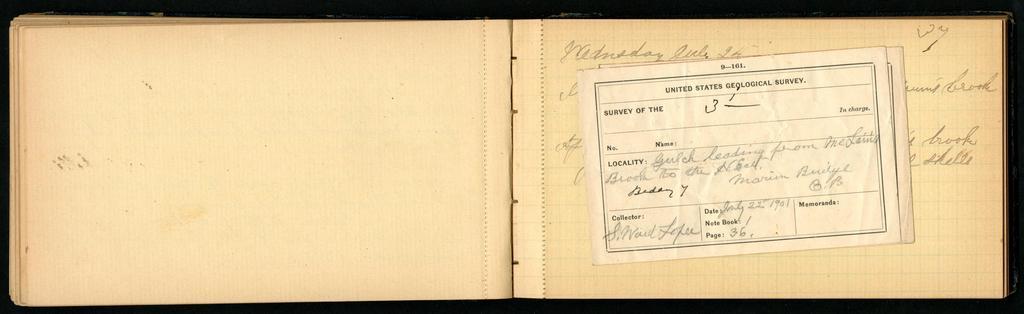 Wednesday July 24
9—161.
UNITED STATES GEOLOGICAL SURVEY.
SURVEY OF THE
3 1
In charge.
No. Name:
LOCALITY: Gulch leading from McLains
Brook to the
Marion Bridge
C.B
Collector:
S. Ward Loper
Date: July 22 1901
Note Book: 1
Page: 36.
Memoranda:
brook
brook
shells